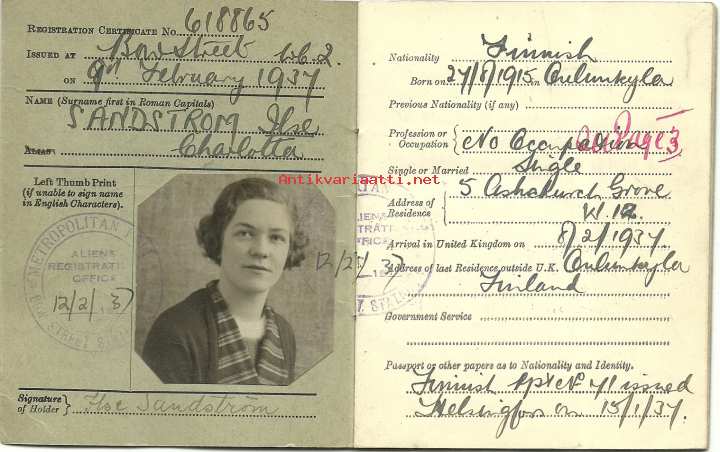 REGISTRATION CERTIFICATE No. 618865
ISSUED AT Bow Street W.C.2.
ON 9th February 1937
NAME (Surname first in Roman Capitals)
SANDSTROM Ilse
Charlotta
ALIAS
Left Thumb Print
(if unable to sign name
in English Characters).
METROPOLITAN
ALIENS
REGISTRATION
OFFICE
12/2/37
BOW STREET
Signature
of Holder } Ilse Sandström
Antikvariaatti.net
12/2/37
Nationality Finnish
Born on 27/8/1915 in Oulunkyla
Previous Nationality (if any)
Profession or
Occupation } No Occupation
Page 3
Single or Married Single
Address of
Residence } 5 Ashchurch Grove
W.12.
Arrival in United Kingdom on 8/2/1937.
Address of last Residence outside U.K. Oulunkyla
Finland
Government Service
Passport or other papers as to Nationality and Identity.
Finnish issued
Helsingfors on 15/1/37.